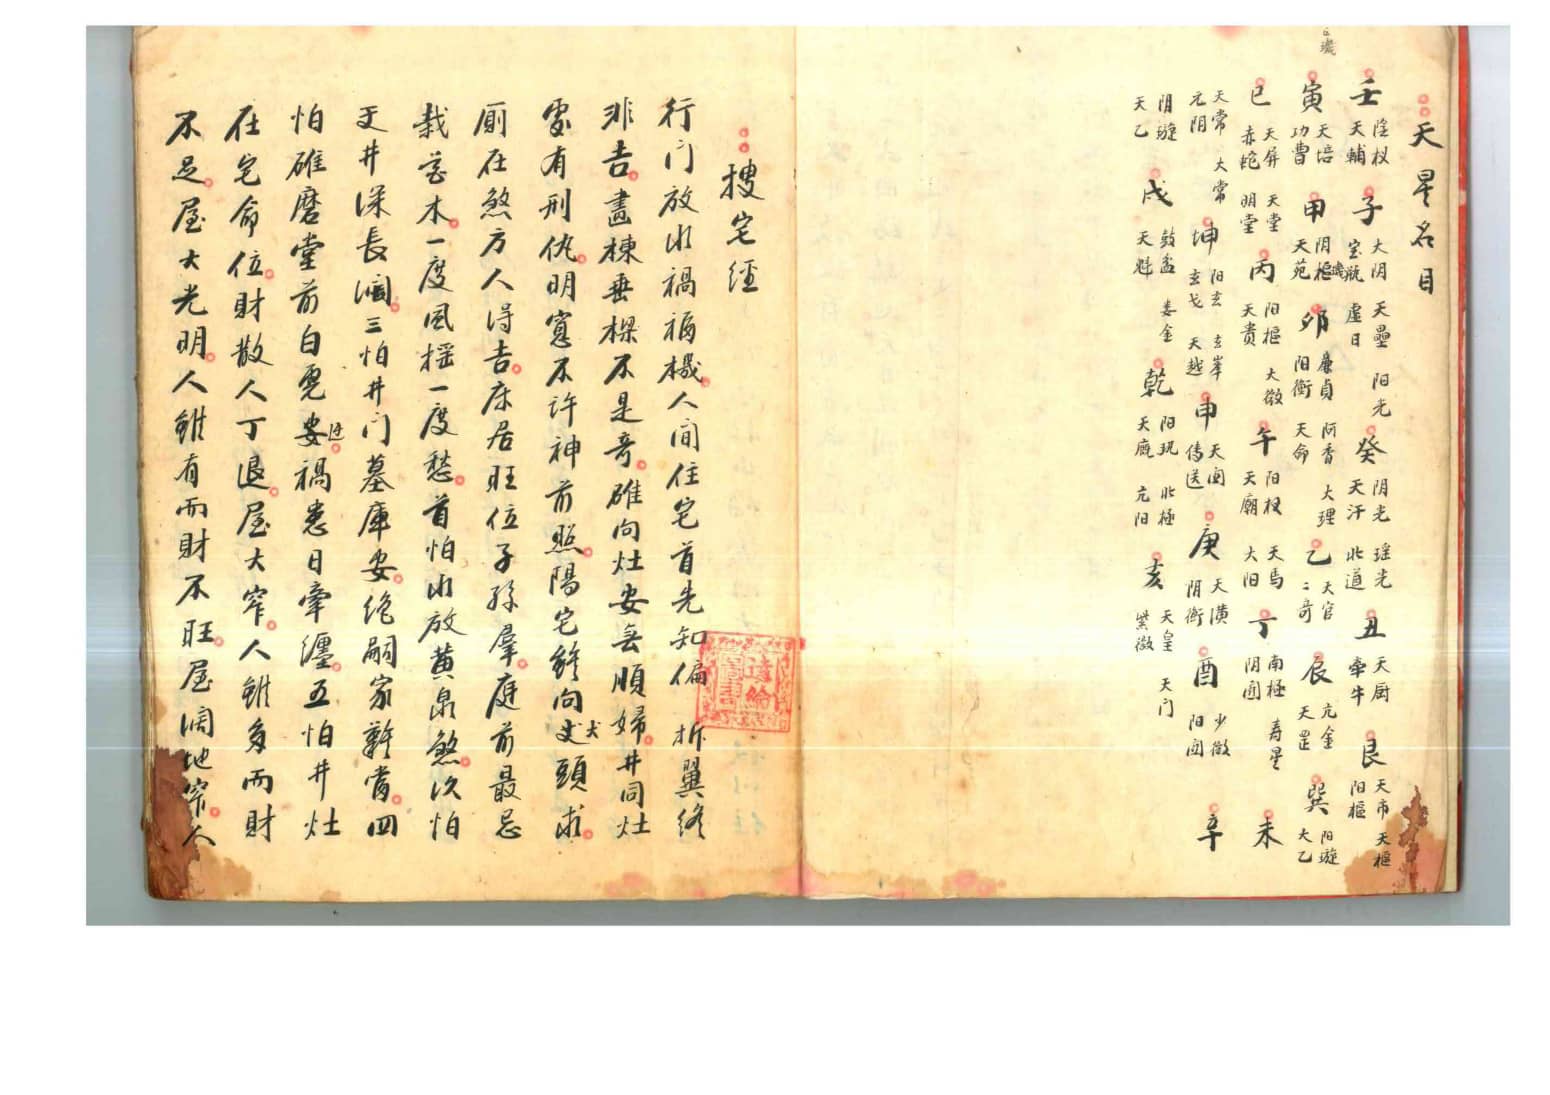 天星名目
壬 陰权 天輔 子 大阴 宝瓶 天壘 虛日 阳光 癸 阴光 天汗 瑶光 北道 丑 天厨 牵牛 艮 天市 阳樞 天樞
寅 天培 功曹 甲 阴樞 天苑 卯 廉貞 阳衡 阿香 天命 大理 乙 天官 二奇 辰 亢金 天罡 巽 阳璇 大乙
巳 天屏 赤蛇 天堂 明堂 丙 阳樞 天贵 大微 午 阳权 天廟 天馬 大阳 丁 南極 阴囯 寿星 未
天常 元阴 大常 坤 阳玄 玄戈 玄峯 天越 申 天囯 传送 庚 天潢 阴衡 酉 少微 阳囯 辛
阴璇 天乙 戌 鼓盆 天魁 娄金 乾 阳玑 天廐 北極 亢阳 亥 天皇 紫微 天门
搜宅經
行门放水禍福機人间住宅首先知偏 折翼終
非吉畫棟垂樑不是奇碓向灶安無順婦井同灶
處有刑仇明窻不許神前照陽宅終向丈犬頭求
厠在煞方人得吉床居旺位子孫羣庭前最忌
栽花木一度風摇一度愁首怕水放黄泉煞次怕
天井深長濶三怕井门墓庫安绝嗣家難當四
怕碓磨堂前白虎安迍禍患日牽纏五怕井灶
在宅命位財散人丁退屋大窄人雖多而財
不足屋大光明人雖有而財不旺屋濶地窄人